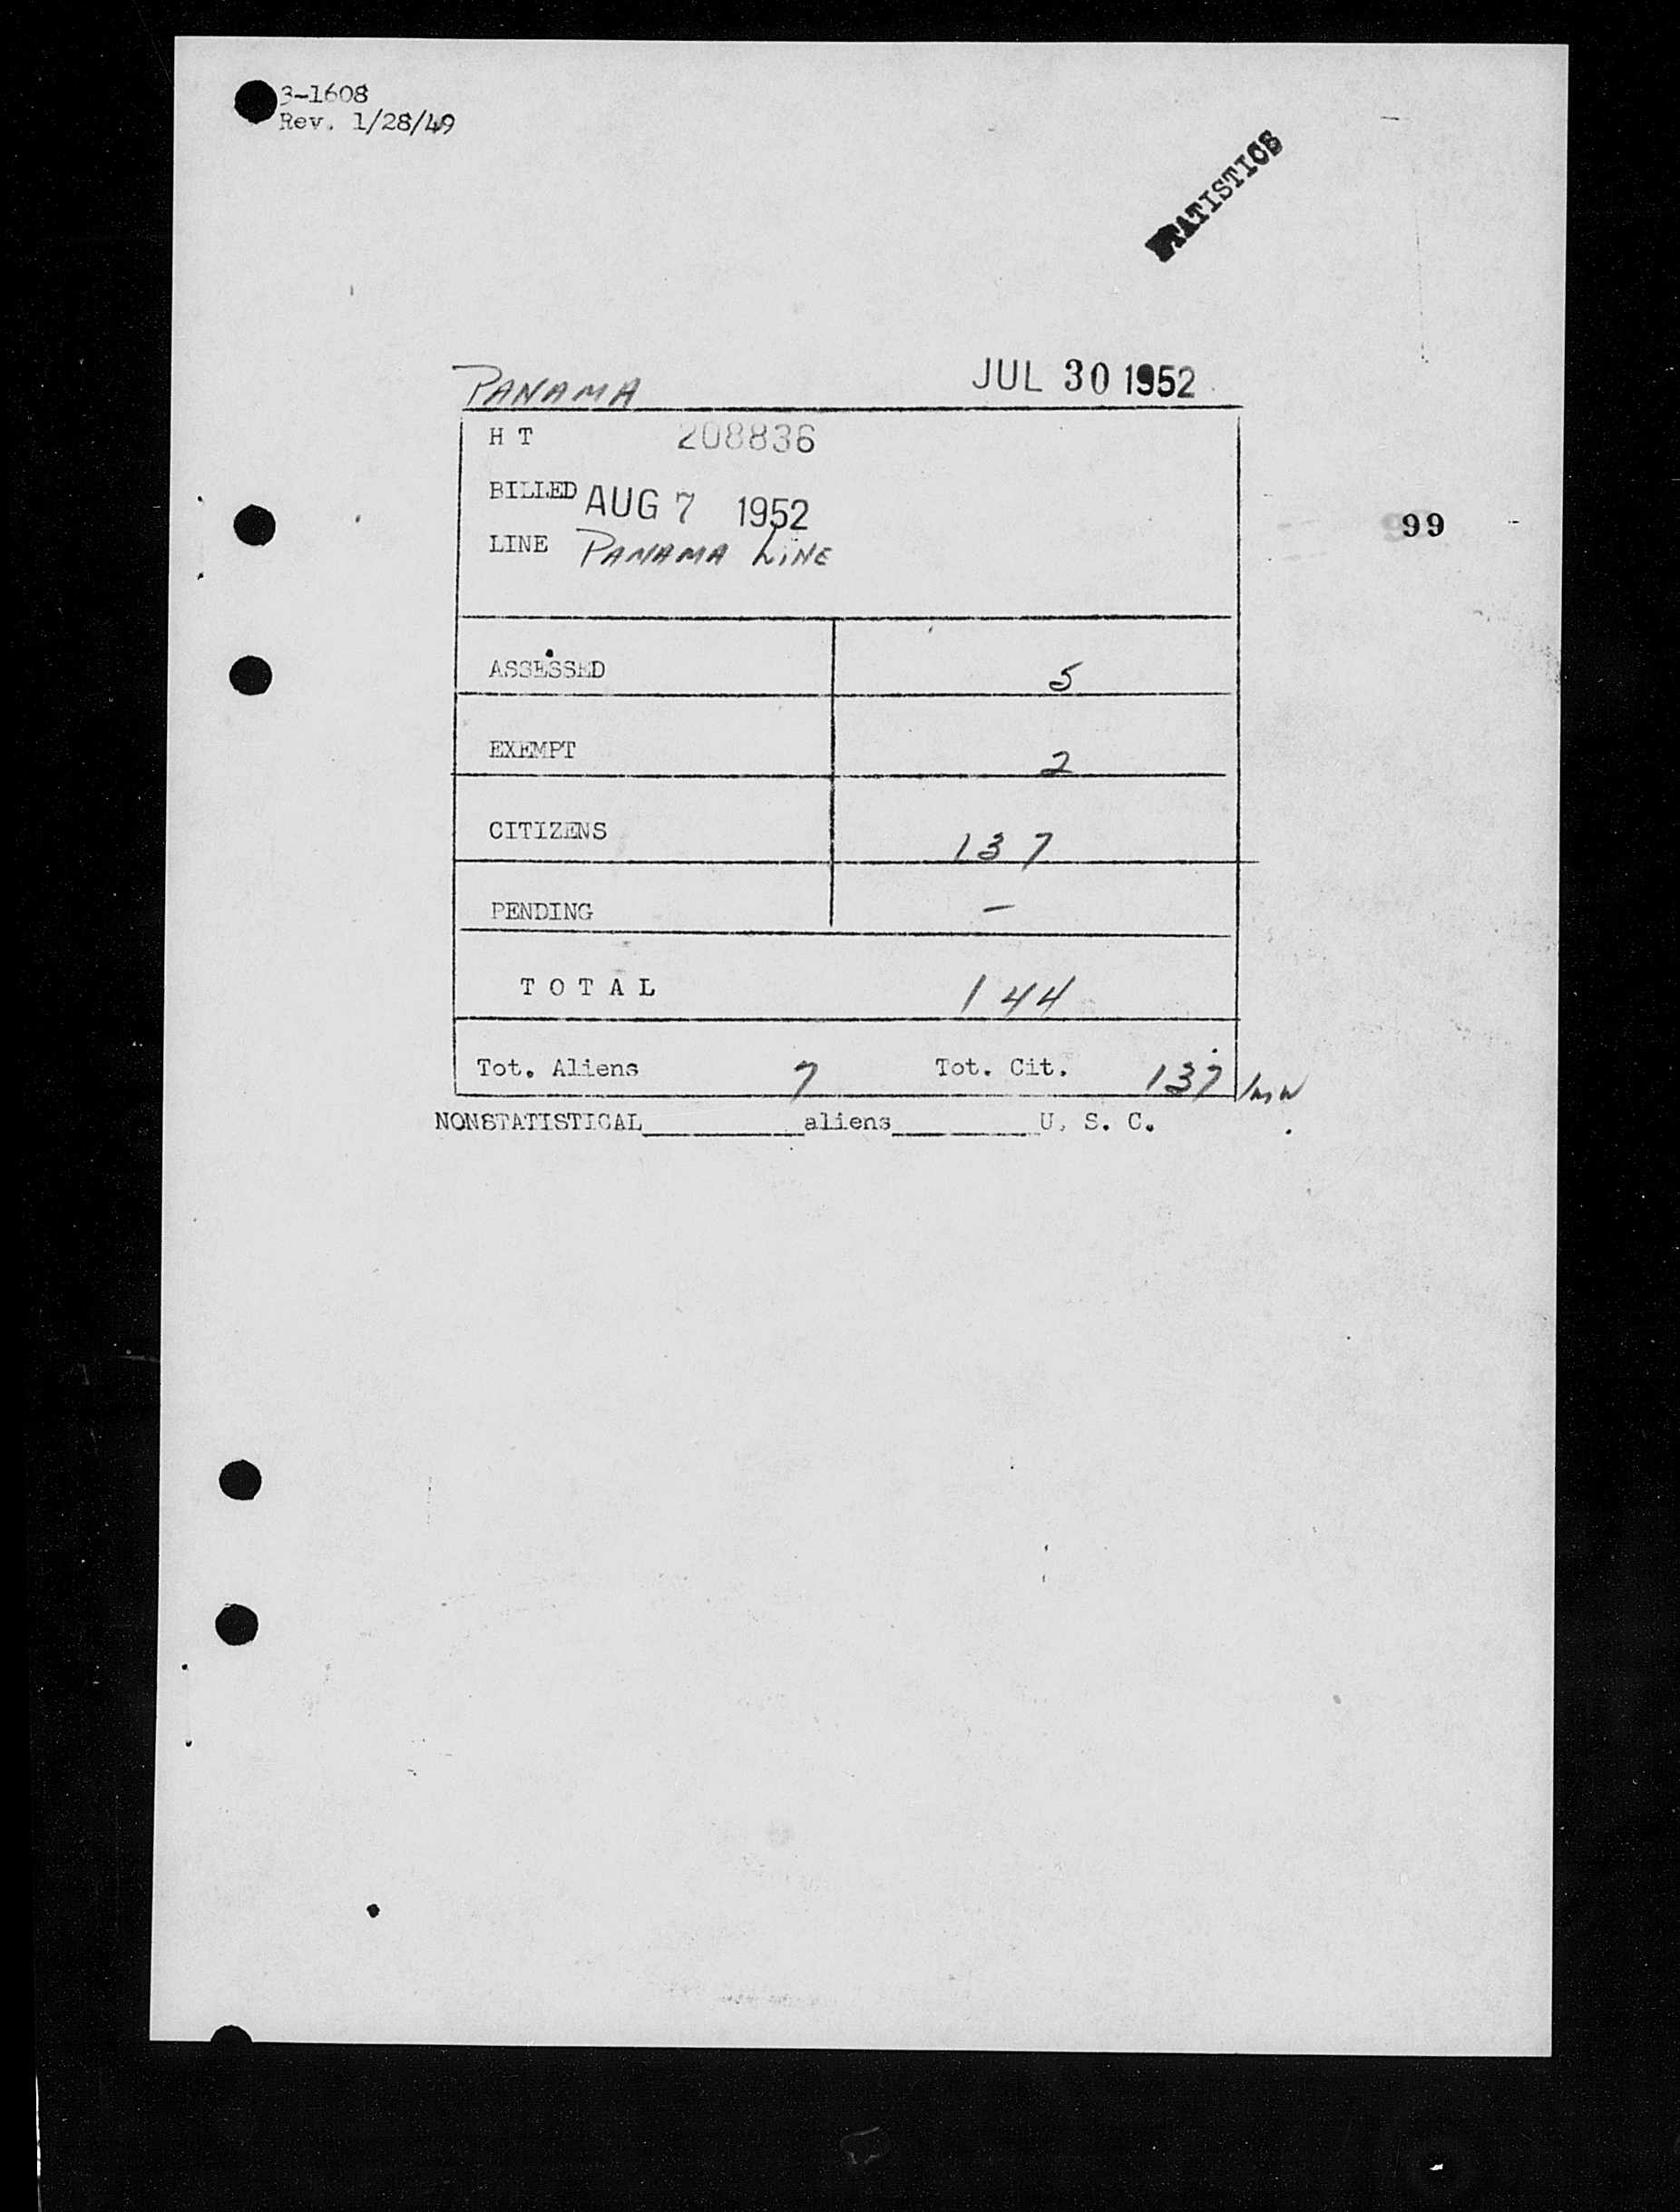 3-1608
Rev. 1/28/49
STATISTICS
PANAMA JUL 30 1952
H T 208836
BILLED AUG 7 1952
LINE PANAMA LINE
99
ASSESSED 5
EXEMPT 2
CITIZENS 137
PENDING –
T O T A L 144
Tot. Aliens 7 Tot. Cit. 137
NONSTATISTICAL____________aliens___________U. S. C.